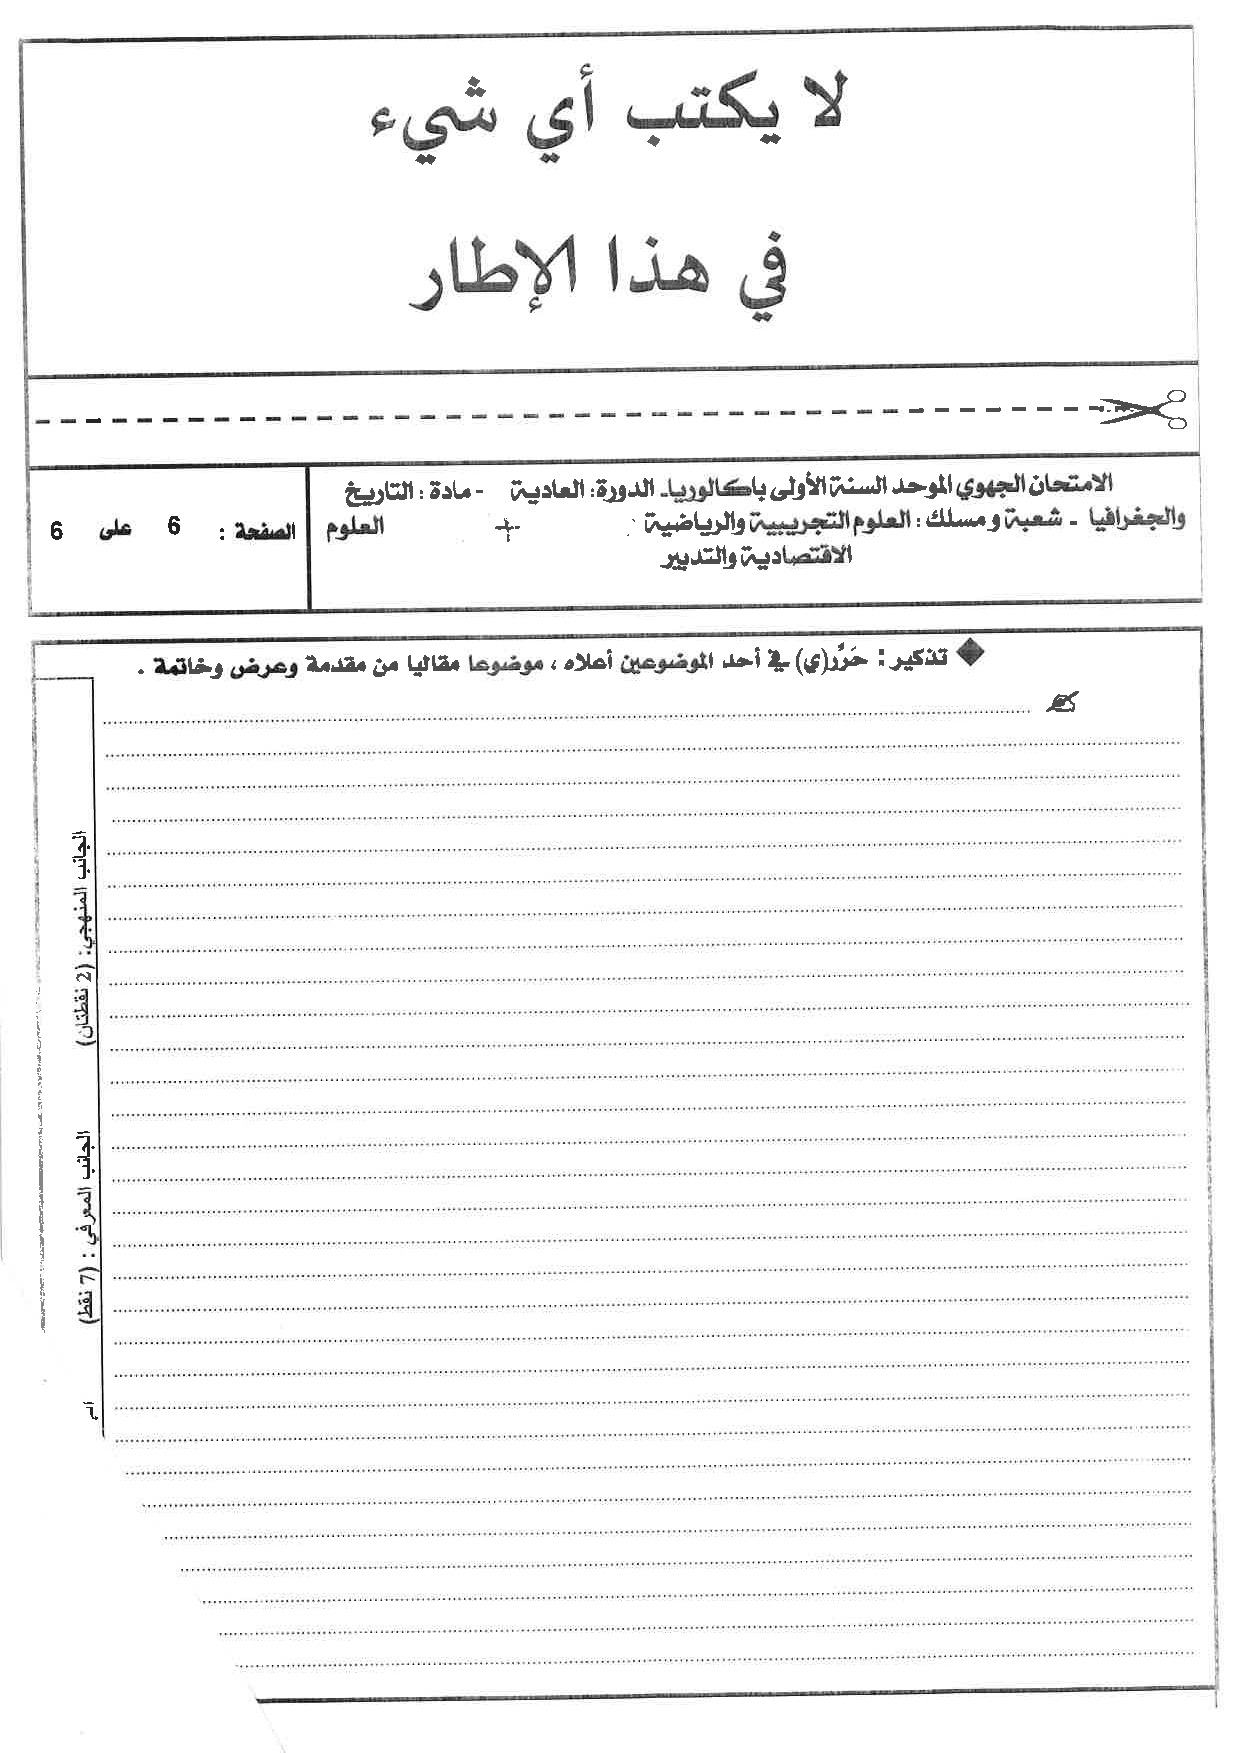 لا يكتب أي شيء
في هذا الإطار
الامتحان الجهوي الموحد السنة الأولى باكالوريا ـ الدورة: العادية - مادة : التاريخ
والجغرافيا ـ شعبة و مسلك : العلوم التجريبية والرياضية + العلوم
الاقتصادية والتدبير
الصفحة : 6 على 6
◆ تذكير : حَرِّر(ي) في أحد الموضوعين أعلاه ، موضوعا مقاليا من مقدمة وعرض وخاتمة .
الجانب المنهجي: (2 نقطتان)
الجانب المعرفي : (7 نقط)